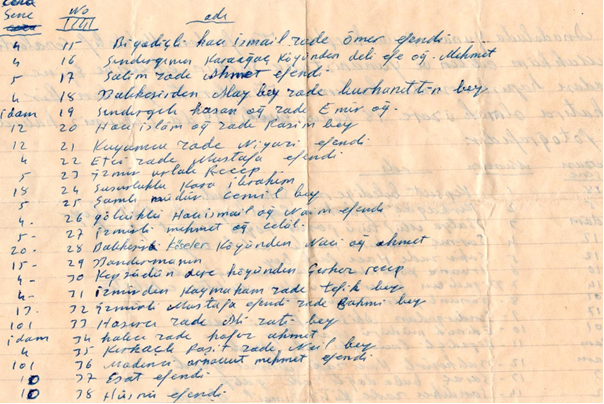 ceza No adı
Sene
4 15 Bigadiçli hacı ismail zade ömer efendi
4 16 Sındırgının Karaağaç Köyünden deli efe oğ. Mehmet
5 17 Salim zade Ahmet efendi
4 18 Balıkesirden Alay bey zade burhanettin bey
idam 19 Sındırgılı hasan oğ zade Emir oğ.
12 20 Hacı islâm oğ zade Rasim bey
12 21 Kuyumcu zade Niyazi efendi
4 22 Etci zade Mustafa efendi
5 23 izmir urlalı Recep
18 24 Susurluklu Kara ibrahim
5 25 Şamlı müdür Cemil bey
4- 26 gölcüklü Hacı ismail oğ Naim efendi
5- 27 izmirli mehmet oğ celâl
20- 28 Balıkesir Köseler Köyünden Naci oğ ahmet
15- 29 Bandırmanın
4- 30 Kepsüdün dere köyünden Çerkez recep
4- 31 izmirden Kaymakam zade tefik bey
17- 32 izmirli Mustafa efendi zade Rahmi bey
101 33 Hasırcı zade Ali bey
idam 34 halıcı zade hafız ahmet
4 35 Kırkağaçlı Raşit zade Nail bey
101 36 Madenci arnavut mehmet efendi
10 37 Esat efendi
10 38 Hüsnü efendi